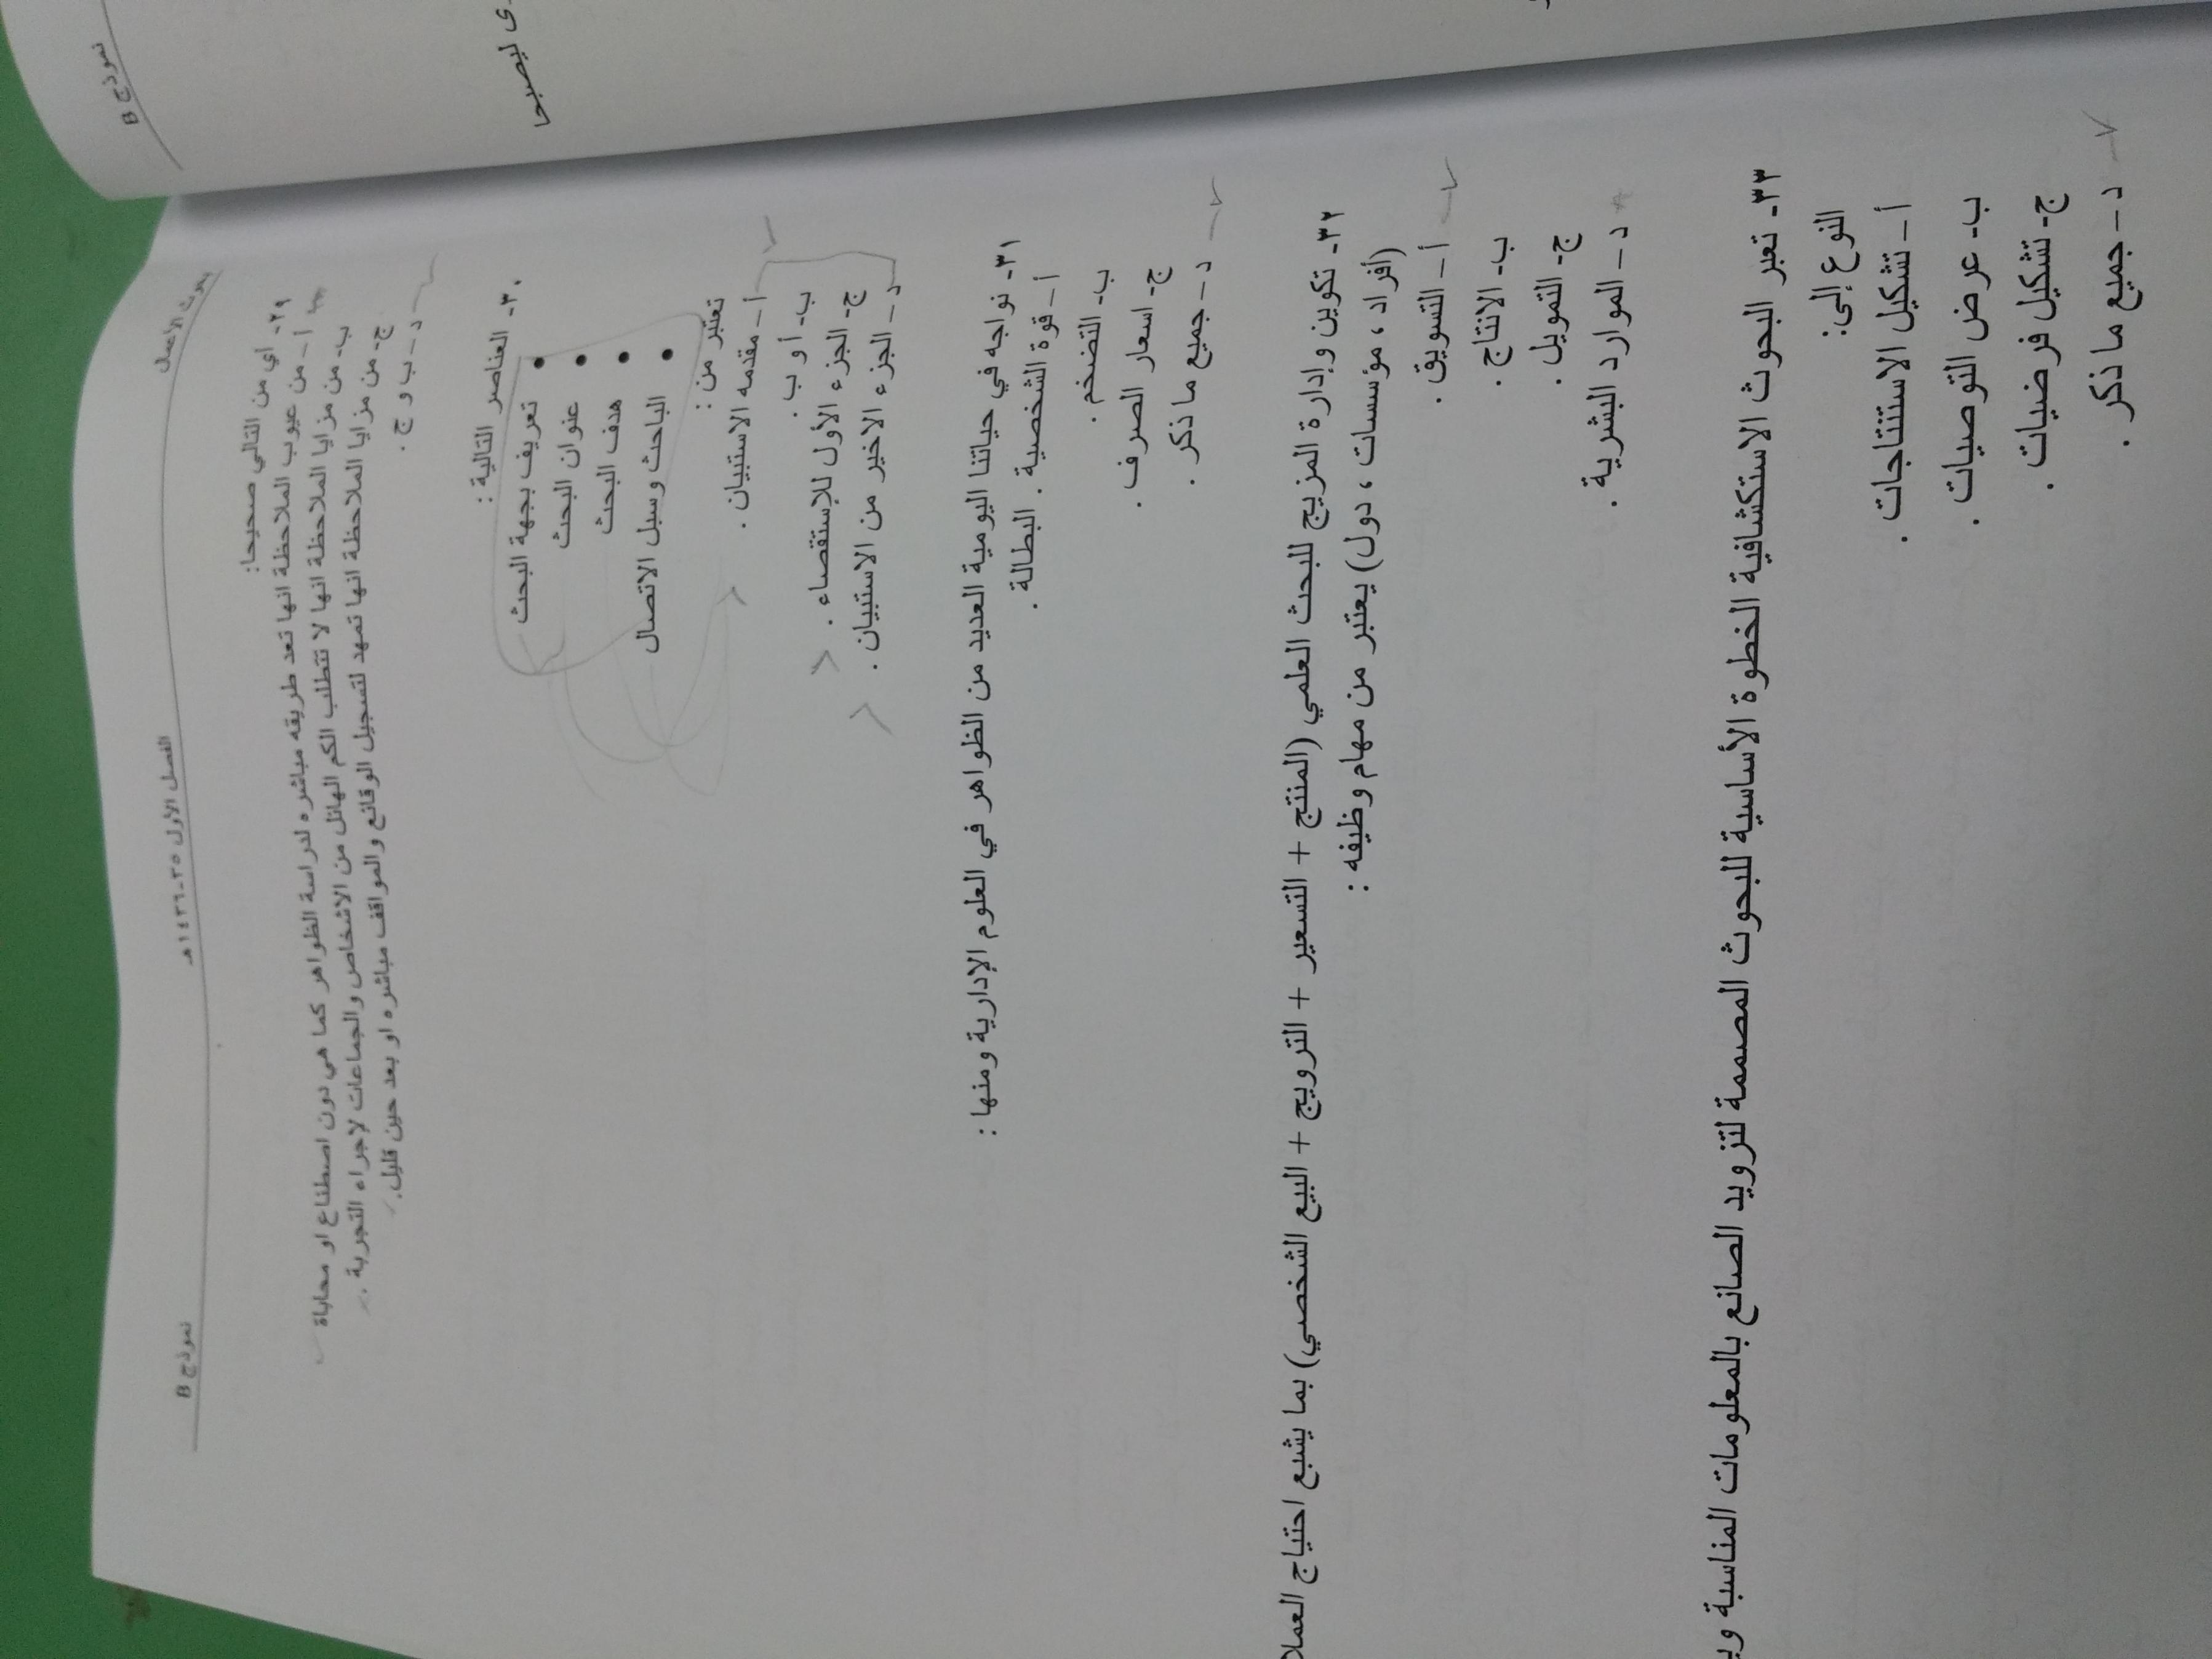 نموذج B
ى ليصبحا
بحوث الأعمال
الفصل الأول ٣٥-١٤٣٦هـ
نموذج B
٢٩- أي من التالي صحيحا:
أ – من عيوب الملاحظة انها تعد طريقه مباشره لدراسة الظواهر كما هي دون اصطناع او محاباة
ب- من مزايا الملاحظة انها لا تتطلب الكم الهائل من الاشخاص والجماعات لإجراء التجربة .
ج- من مزايا الملاحظة انها تمهد لتسجيل الوقائع والمواقف مباشره او بعد حين قليل.
د – ب و ج .
٣٠- العناصر التالية :
• تعريف بجهة البحث
• عنوان البحث
• هدف البحث
• الباحث وسبل الاتصال
تعتبر من :
أ – مقدمه الاستبيان .
ب- أ و ب .
ج- الجزء الأول للإستقصاء .
د – الجزء الاخير من الاستبيان .
٣١- نواجه في حياتنا اليومية العديد من الظواهر في العلوم الإدارية ومنها :
أ – قوة الشخصية . البطالة .
ب- التضخم .
ج- اسعار الصرف .
د – جميع ما ذكر .
٣٢- تكوين وإدارة المزيج للبحث العلمي (المنتج + التسعير + الترويج + البيع الشخصي) بما يشبع احتياج العملا
(أفراد ، مؤسسات ، دول) يعتبر من مهام وظيفه :
أ – التسويق .
ب- الانتاج .
ج- التمويل .
د – الموارد البشرية .
٣٣- تعبر البحوث الاستكشافية الخطوة الأساسية للبحوث المصممة لتزويد الصانع بالمعلومات المناسبة وي
النوع إلى:
أ – تشكيل الاستنتاجات .
ب- عرض التوصيات .
ج- تشكيل فرضيات .
د – جميع ما ذكر .